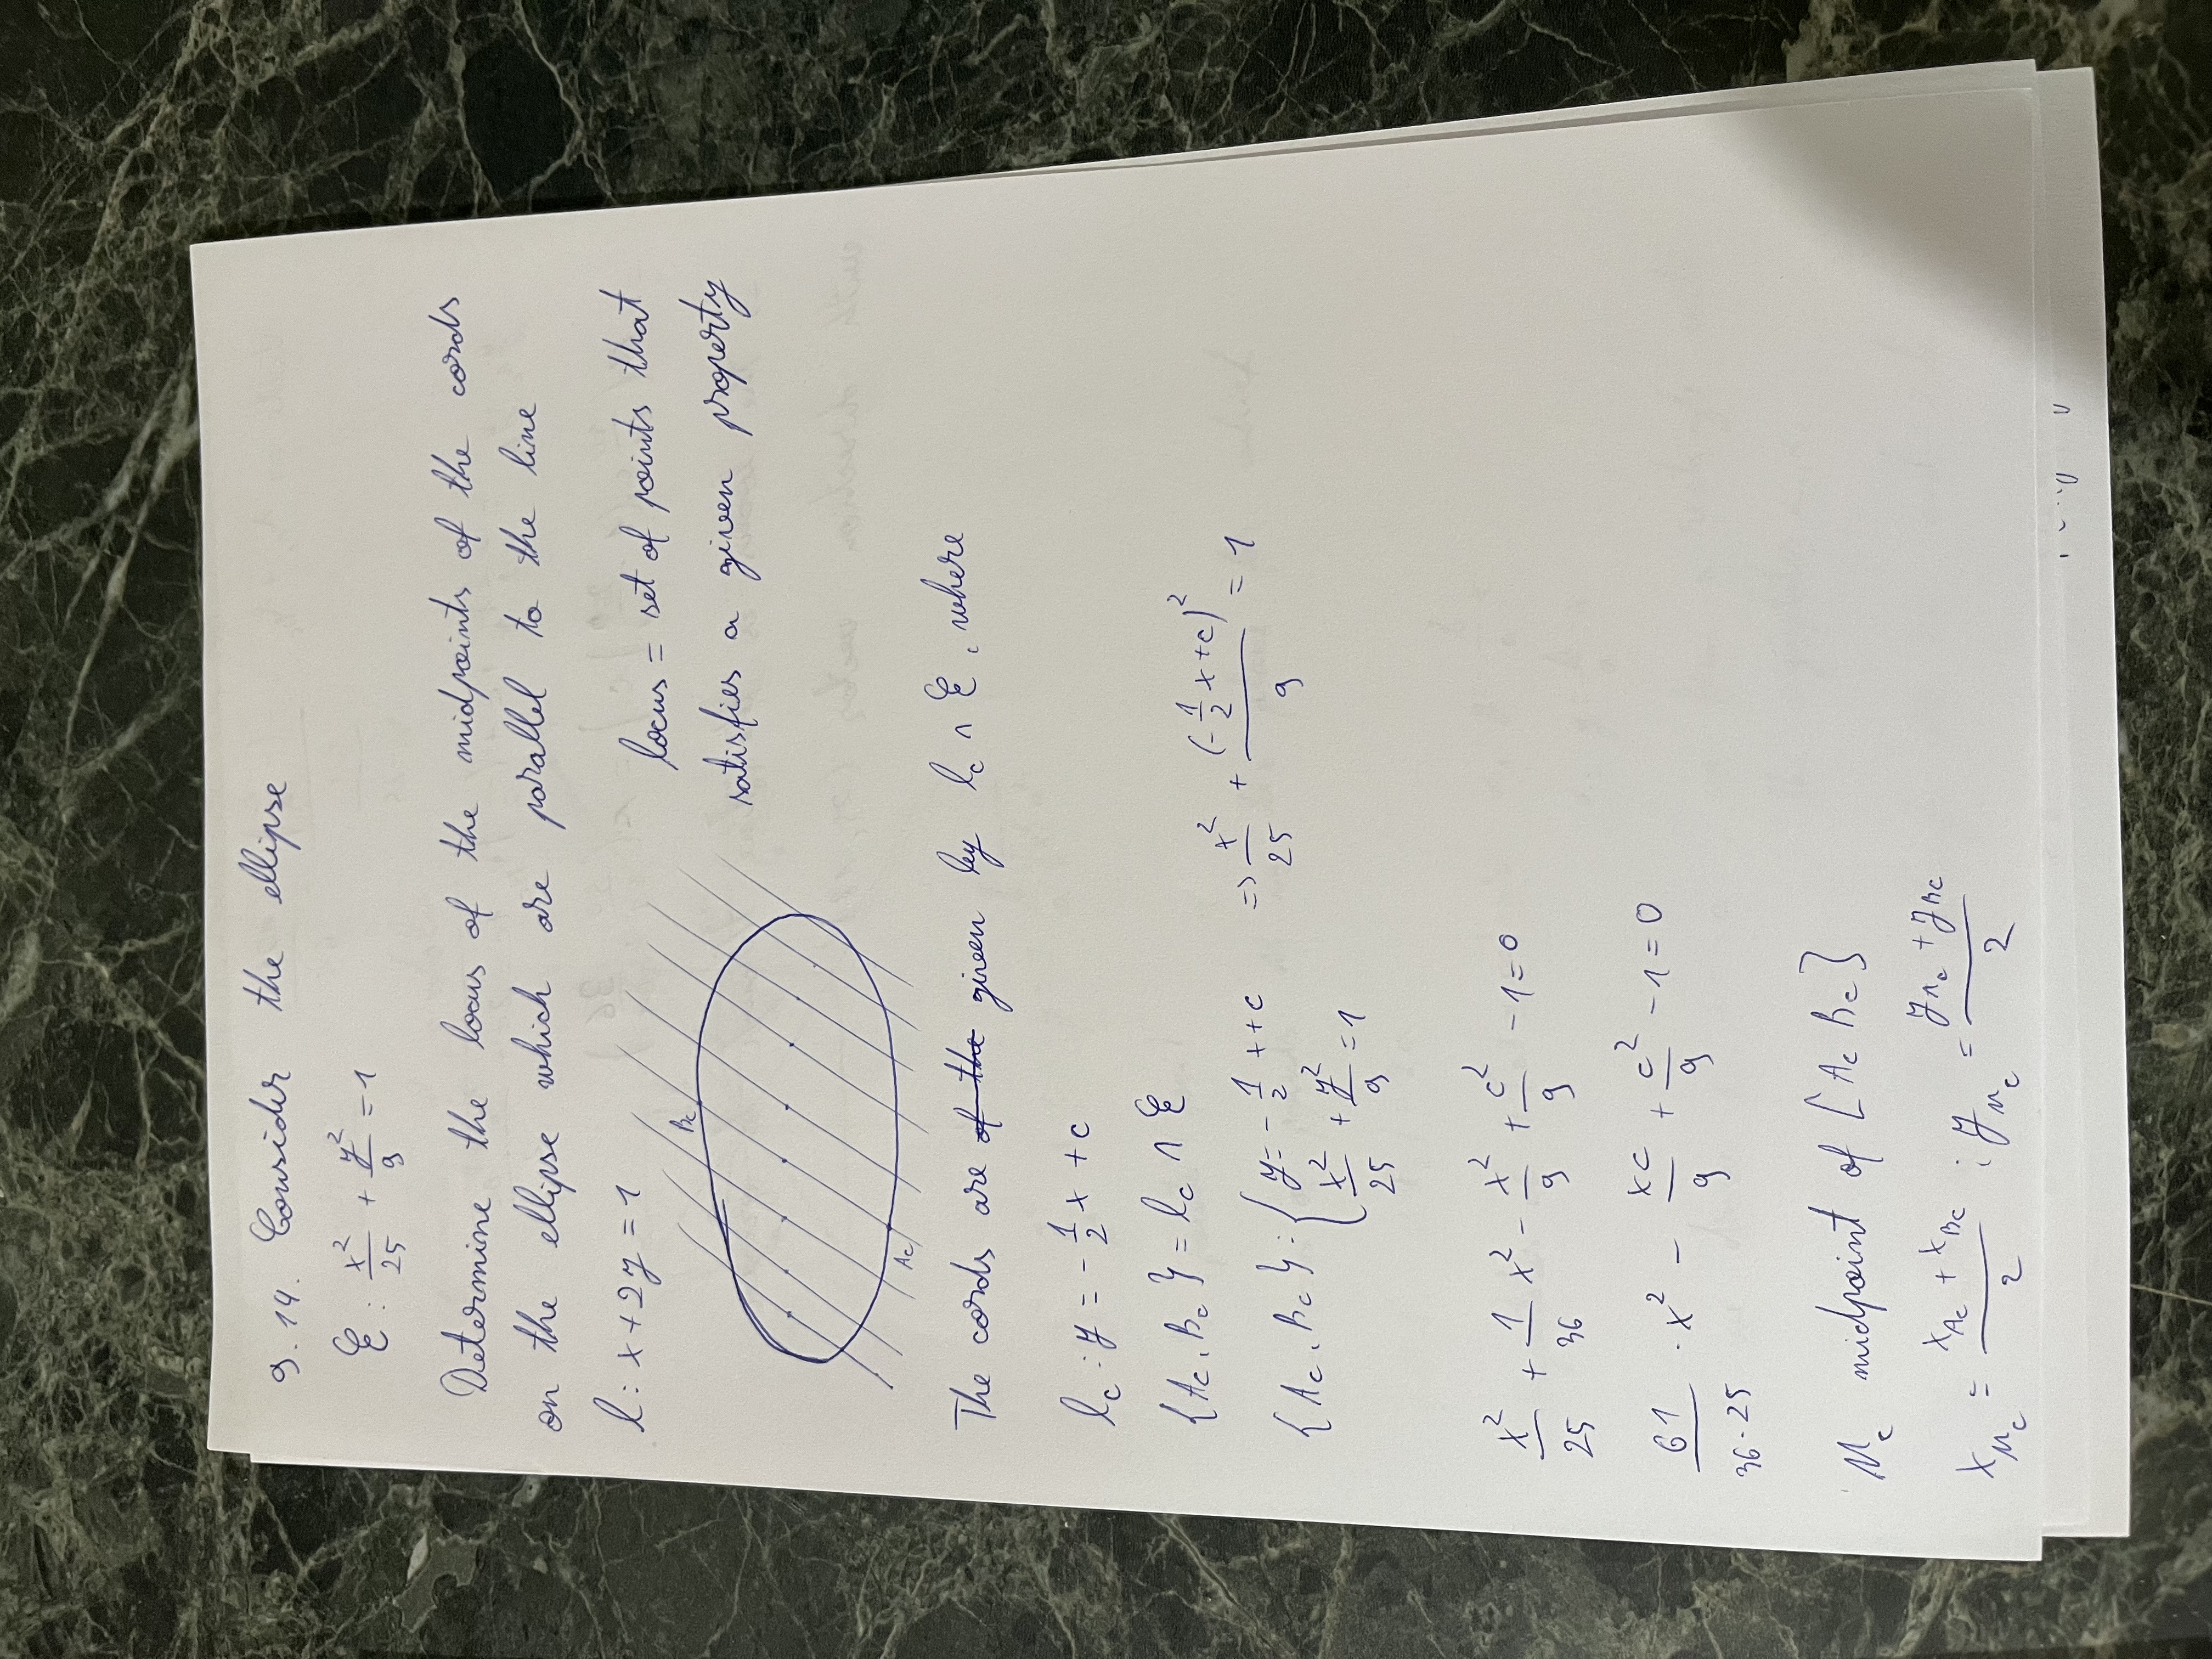 9.14. Consider the ellipse
ℰ: x²/25 + y²/9 = 1
Determine the locus of the midpoints of the cords
on the ellipse which are parallel to the line
l: x+2y = 1
locus = set of points that
satisfies a given property
Bc
Ac
The cords are ~~of the~~ given by l_c ∩ ℰ, where
l_c : y = -1/2 x + c
{A_c, B_c} = l_c ∩ ℰ
{A_c, B_c} : { y = -1/2 x + c
x²/25 + y²/9 = 1
=> x²/25 + (-1/2 x + c)²/9 = 1
x²/25 + 1/36 x² - x²/9 + c²/9 - 1 = 0
61/(36·25) · x² - xc/9 + c²/9 - 1 = 0
M_c midpoint of [A_c B_c]
x_{M_c} = (x_{A_c} + x_{B_c})/2 ; y_{M_c} = (y_{A_c} + y_{B_c})/2